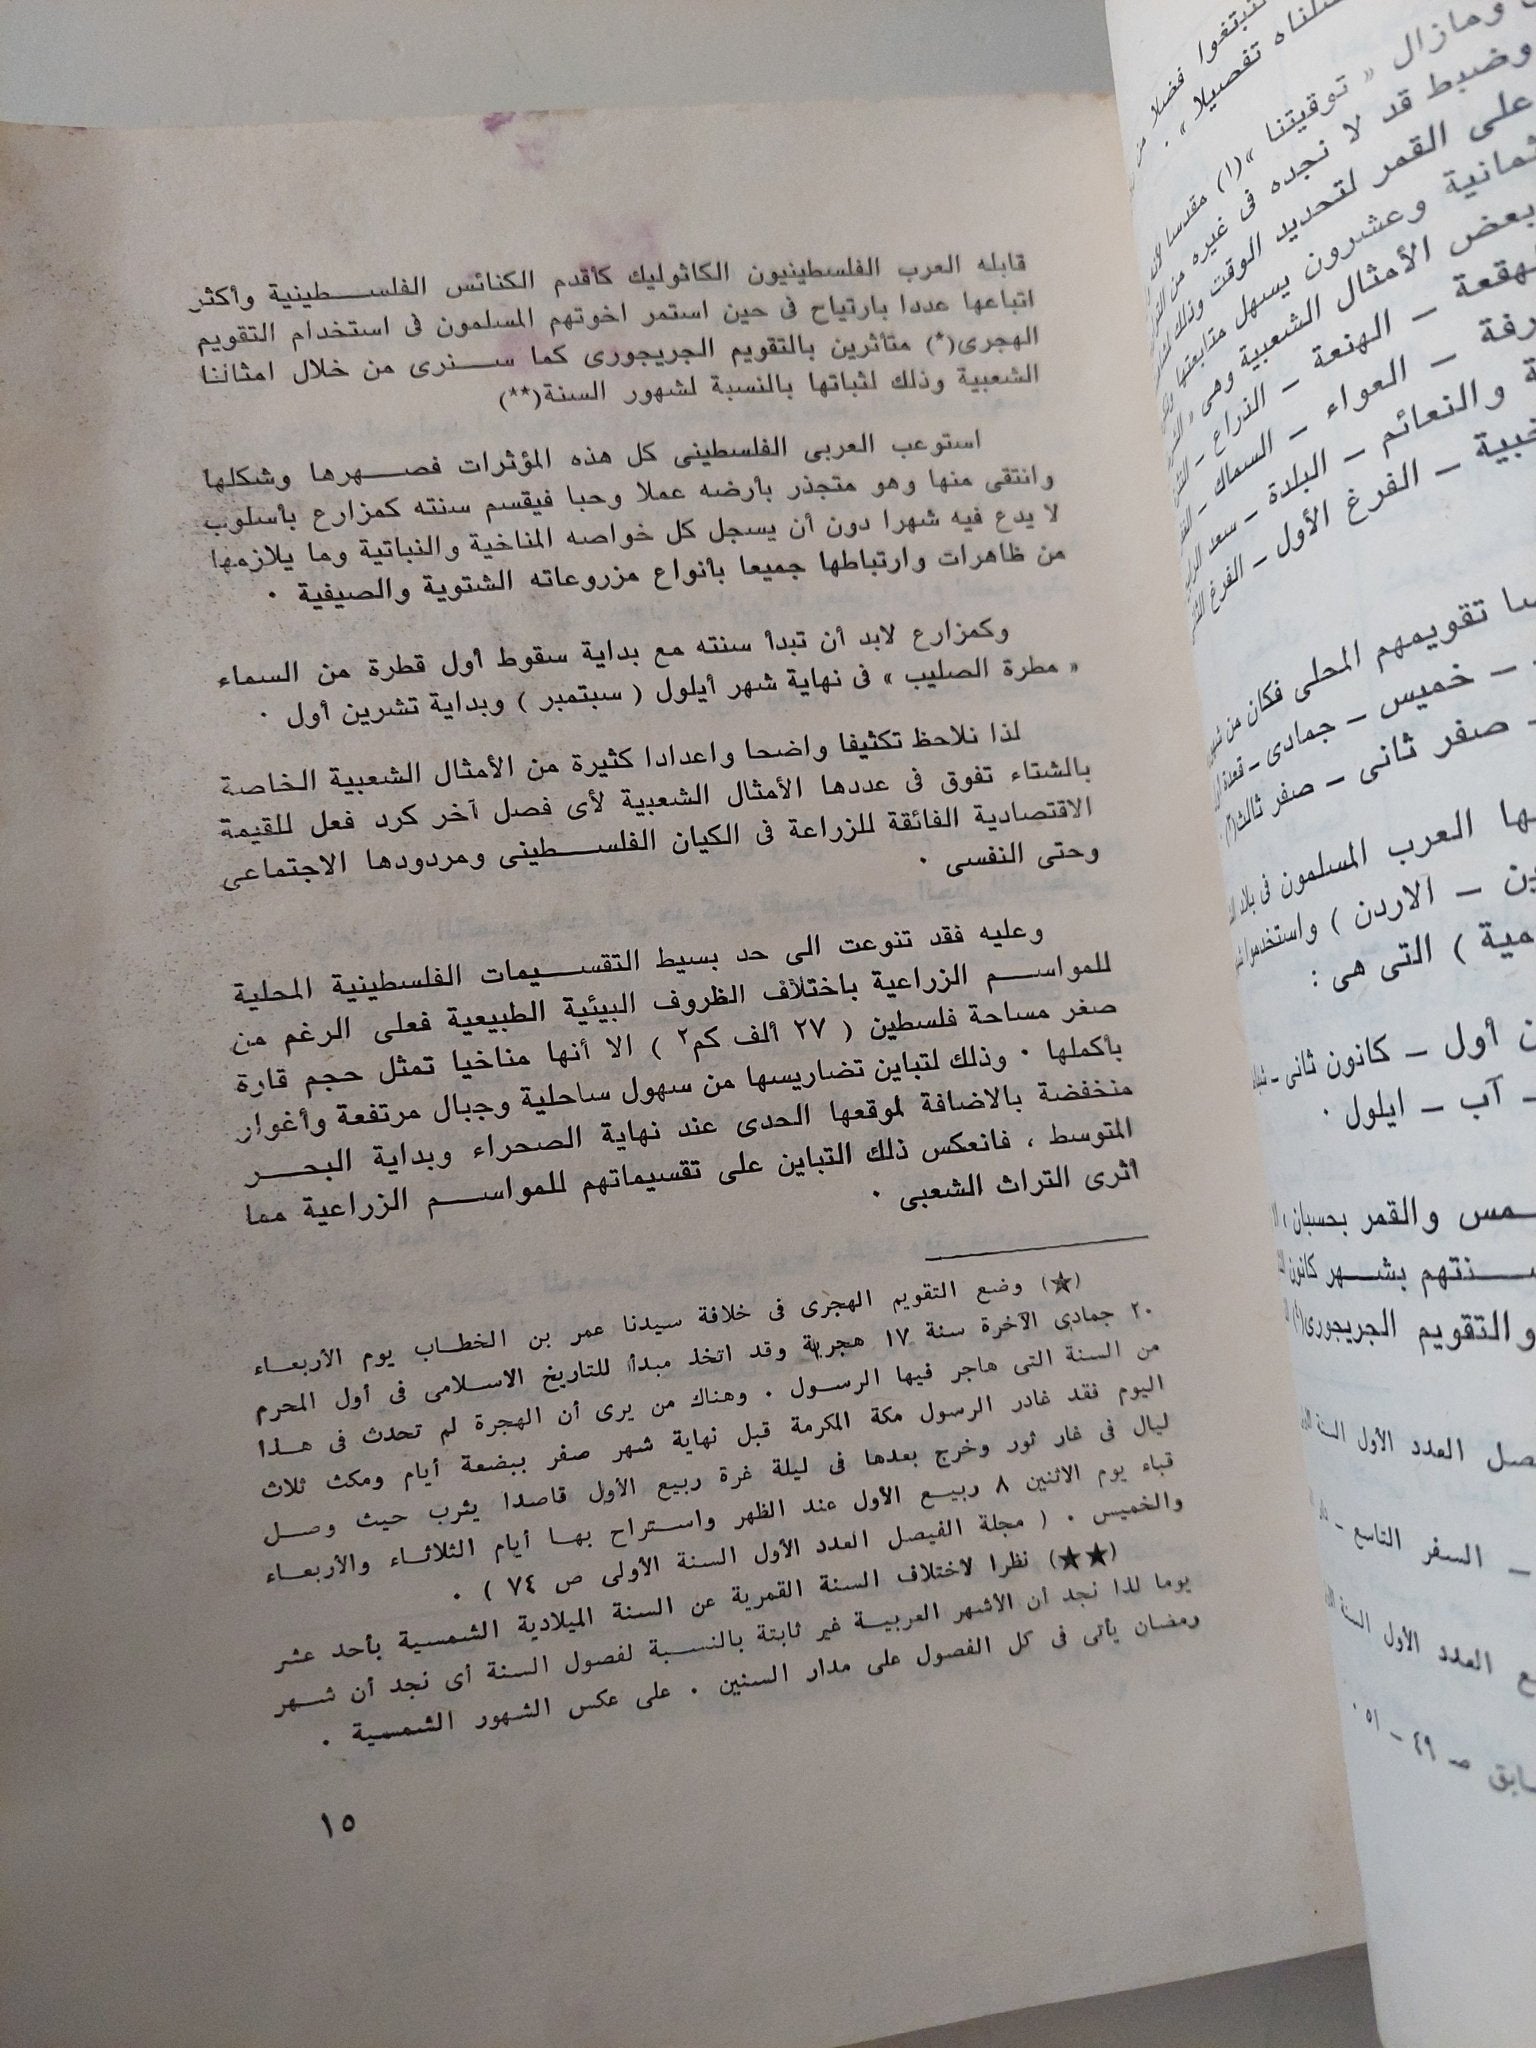 قابله العرب الفلسطينيون الكاثوليك كأقدم الكنائس الفلسطينية وأكثر
اتباعها عددا بارتياح فى حين استمر اخوتهم المسلمون فى استخدام التقويم
الهجرى(*) متأثرين بالتقويم الجريجورى كما سنرى من خلال امثالنا
الشعبية وذلك لثباتها بالنسبة لشهور السنة(**)
استوعب العربى الفلسطينى كل هذه المؤثرات فصهرها وشكلها
وانتقى منها وهو متجذر بأرضه عملا وحبا فيقسم سنته كمزارع بأسلوب
لا يدع فيه شهرا دون أن يسجل كل خواصه المناخية والنباتية وما يلازمها
من ظاهرات وارتباطها جميعا بأنواع مزروعاته الشتوية والصيفية .
وكمزارع لابد أن تبدأ سنته مع بداية سقوط أول قطرة من السماء
« مطرة الصليب » فى نهاية شهر أيلول ( سبتمبر ) وبداية تشرين أول .
لذا نلاحظ تكثيفا واضحا واعدادا كثيرة من الأمثال الشعبية الخاصة
بالشتاء تفوق فى عددها الأمثال الشعبية لأى فصل آخر كرد فعل للقيمة
الاقتصادية الفائقة للزراعة فى الكيان الفلسطينى ومردودها الاجتماعى
وحتى النفسى .
وعليه فقد تنوعت الى حد بسيط التقسيمات الفلسطينية المحلية
للمواسم الزراعية باختلاف الظروف البيئية الطبيعية فعلى الرغم من
صغر مساحة فلسطين ( ٢٧ ألف كم٢ ) الا أنها مناخيا تمثل حجم قارة
بأكملها . وذلك لتباين تضاريسها من سهول ساحلية وجبال مرتفعة وأغوار
منخفضة بالاضافة لموقعها الحدى عند نهاية الصحراء وبداية البحر
المتوسط ، فانعكس ذلك التباين على تقسيماتهم للمواسم الزراعية مما
أثرى التراث الشعبى .
(★) وضع التقويم الهجرى فى خلافة سيدنا عمر بن الخطاب يوم الأربعاء
٢٠ جمادى الآخرة سنة ١٧ هجرية وقد اتخذ مبدأ للتاريخ الاسلامى فى أول المحرم
من السنة التى هاجر فيها الرسول . وهناك من يرى أن الهجرة لم تحدث فى هذا
اليوم فقد غادر الرسول مكة المكرمة قبل نهاية شهر صفر ببضعة أيام ومكث ثلاث
ليال فى غار ثور وخرج بعدها فى ليلة غرة ربيع الأول قاصدا يثرب حيث وصل
قباء يوم الاثنين ٨ ربيع الأول عند الظهر واستراح بها أيام الثلاثاء والأربعاء
والخميس . ( مجلة الفيصل العدد الأول السنة الأولى ص ٧٤ ) .
(★★) نظرا لاختلاف السنة القمرية عن السنة الميلادية الشمسية بأحد عشر
يوما لذا نجد أن الأشهر العربية غير ثابتة بالنسبة لفصول السنة أى نجد أن شهر
رمضان يأتى فى كل الفصول على مدار السنين . على عكس الشهور الشمسية .
١٥
تبتغوا فضلا من
تفصيلا » .
ومازال « توقيتنا »(١) مقدسا
وضبط قد لا نجده فى غيره من
على القمر لتحديد الوقت وذلك
ثمانية وعشرون يسهل متابعتها
بعض الأمثال الشعبية وهى
الهقعة – الهنعة – الذراع –
– العواء – السماك –
والنعائم – البلدة – سعد
– الفرغ الأول – الفرغ
تقويمهم المحلى فكان من
– خميس – جمادى –
– صفر ثانى – صفر ثالث(٢)
العرب المسلمون فى بلاد
– الاردن ) واستخدموا
) التى هى :
أول – كانون ثانى –
– آب – ايلول .
والقمر بحسبان
بشهر كانون
والتقويم الجريجورى(٤)
العدد الأول السنة
– السفر التاسع –
العدد الأول السنة
ص ٤٩ – ٥١ .